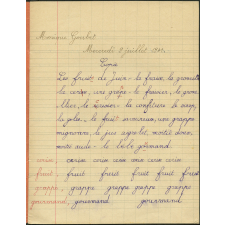 Monique
Mercredi 2 juillet
Copie
Les fruits de Juin - la fraise, la groseille
la cerise, une grappe - le fraisier, le gro-
illier, le cerisier - la confiture, le sirop,
la gelée, le fruit savoureux, une grappe
mignonne, le jus aigrelet
- le bébé gourmand
cerise, cerise cerise cerise cerise cerise
fruit, fruit fruit fruit fruit fruit
grappe, grappe grappe grappe grappe
gourmand, gourmand gourmand.